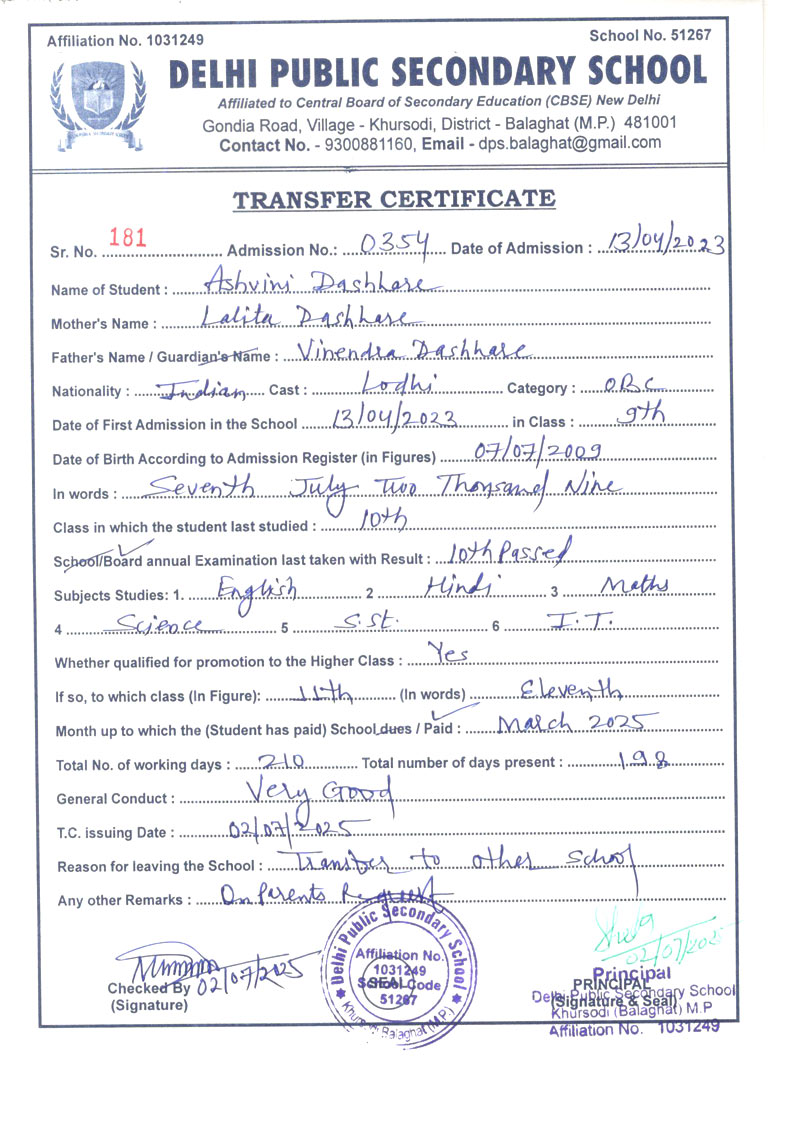 Affiliation No. 1031249 School No. 51267
DELHI PUBLIC SECONDARY SCHOOL
Affiliated to Central Board of Secondary Education (CBSE) New Delhi
Gondia Road, Village - Khursodi, District - Balaghat (M.P.) 481001
Contact No. - 9300881160, Email - dps.balaghat@gmail.com
TRANSFER CERTIFICATE
Sr. No. 181 Admission No.: 0354 Date of Admission : 13/04/2023
Name of Student : Ashvini Dashhare
Mother's Name : Lalita Dashhare
Father's Name / Guardian's Name : Vinendra Dashhare
Nationality : Indian Cast : Lodhi Category : OBC
Date of First Admission in the School 13/04/2023 in Class : 9th
Date of Birth According to Admission Register (in Figures) 07/07/2009
In words : Seventh July Two Thousand Nine
Class in which the student last studied : 10th
School/Board annual Examination last taken with Result : 10th Passed
Subjects Studies: 1. English 2 Hindi 3 Maths
4 Science 5 S.St. 6 I.T.
Whether qualified for promotion to the Higher Class : Yes
If so, to which class (In Figure): 11th (In words) Eleventh
Month up to which the (Student has paid) School dues / Paid : March 2025
Total No. of working days : 210 Total number of days present : 198
General Conduct : Very Good
T.C. issuing Date : 02/07/2025
Reason for leaving the School : Transfer to other school
Any other Remarks : On Parents Request
Delhi Public Secondary School
Affiliation No.
1031249
School Code
SEAL
51267
Khursodi Balaghat (M.P.)
Checked By 02/07/2025
(Signature)
02/07/2025
Principal
PRINCIPAL
Delhi Public Secondary School
(Signature & Seal)
Khursodi (Balaghat) M.P
Affiliation No. 1031249